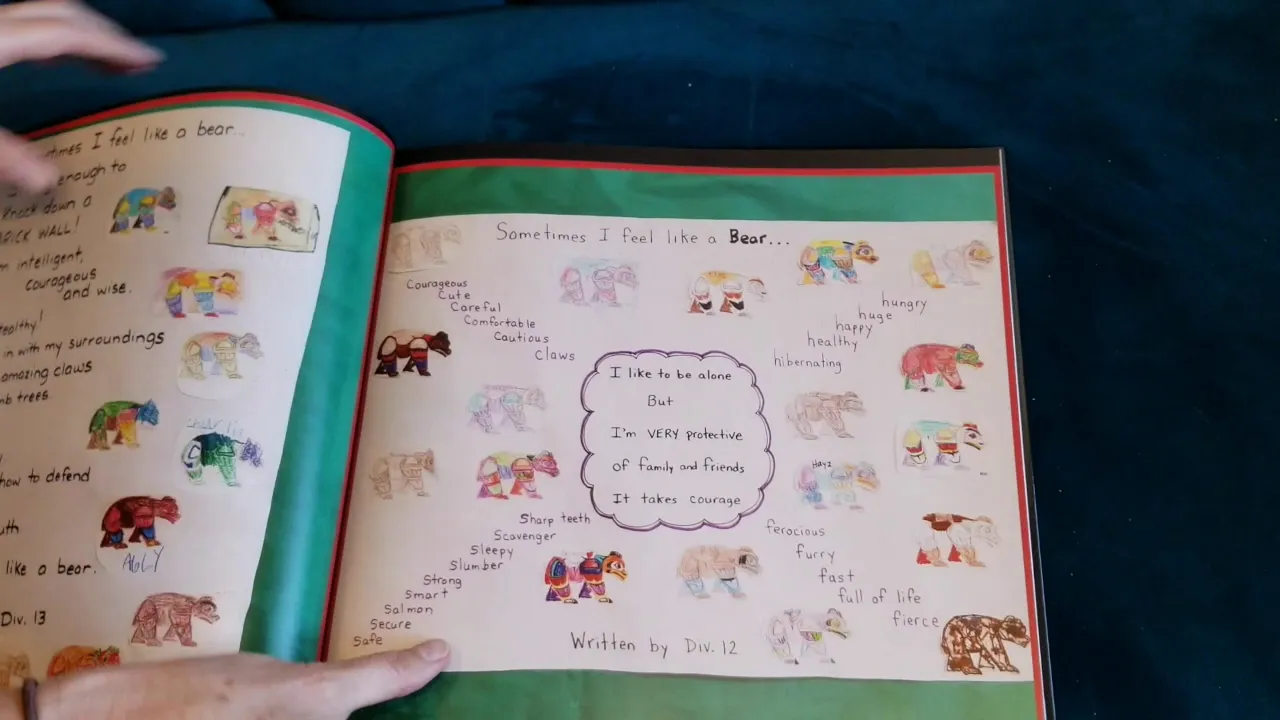 I feel like a bear...
enough to
Knock down a
BRICK WALL!
intelligent,
courageous
and wise.
in with my surroundings
amazing claws
trees.
how to defend
like a bear.
ABLY
Div. 13
Sometimes I feel like a Bear...
Courageous
Cute
Careful
Comfortable
Cautious
Claws
hungry
huge
happy
healthy
hibernating
I like to be alone
But
I'm VERY protective
of family and friends
It takes courage
Hayz
Sharp teeth
Scavenger
Sleepy
Slumber
Strong
Smart
Salmon
Secure
Safe
ferocious
furry
fast
full of life
fierce
Written by Div. 12